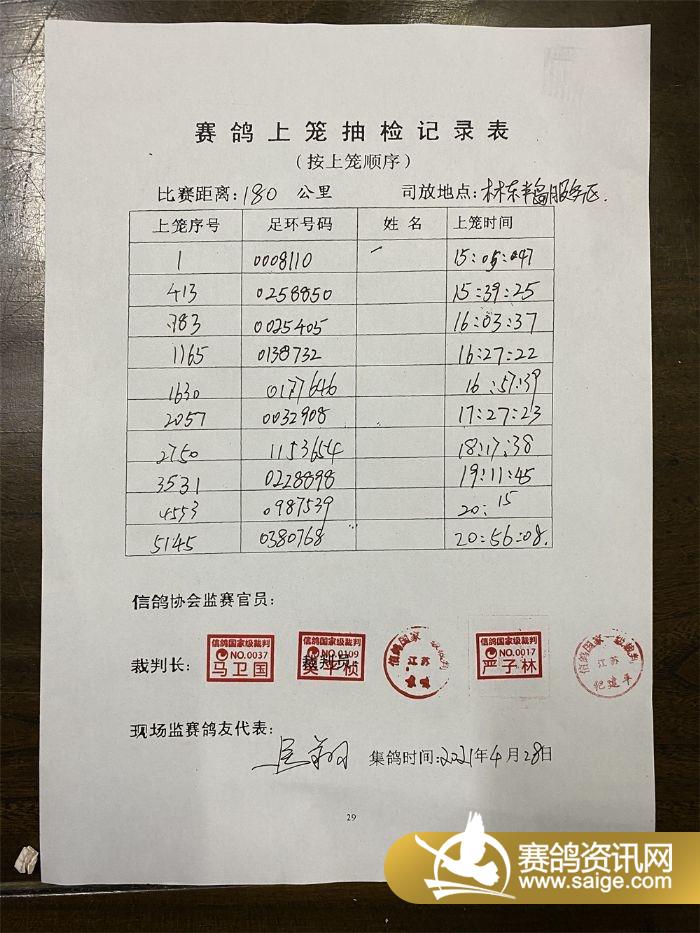 赛鸽上笼抽检记录表
(按上笼顺序)
比赛距离:180 公里 司放地点:服务区.
上笼序号 足环号码 姓名 上笼时间
1 0008110 15:05:047
413 0258850 15:39:25
783 0025405 16:03:37
1165 0138732 16:27:22
1630 0177646 16:57:39
2057 0032908 17:27:23
2750 1153654 18:17:38
3531 0228898 19:11:45
4553 0987539 20:15
5145 0380768 20:56:08.
信鸽协会监赛官员:
裁判长: 信鸽国家级裁判 NO.0037 马卫国 信鸽国家级裁判 NO.0109 裁判员: 信鸽国家一级裁判 江苏 信鸽国家级裁判 NO.0017 严子林 信鸽国家一级裁判 江苏
现场监赛鸽友代表:
集鸽时间:2021年4月28日
29
赛鸽资讯网
www.saige.com